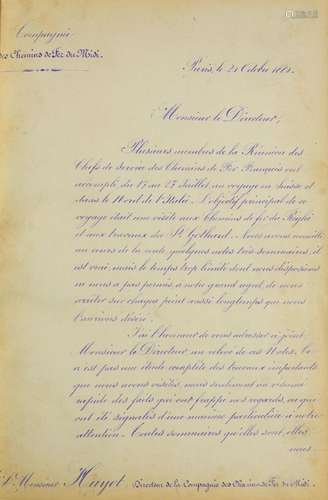 Compagnie
des Chemins de Fer du Midi.
Paris, le 21 Octobre 1882.
Monsieur le Directeur,
Plusieurs membres de la Réunion des
Chefs de Service des Chemins de Fer Français ont
accompli, du 17 au 27 Juillet, un voyage en Suisse et
dans le Nord de l'Italie. L'objectif principal de ce
voyage était une visite aux Chemins de fer du Righi
et aux travaux du St Gothard. Nous avons recueilli
au cours de la route quelques notes très sommaires, il
est vrai, mais le temps trop limité dont nous disposions
ne nous a pas permis, à notre grand regret, de nous
arrêter sur chaque point aussi longtemps que nous
l'aurions désiré.
J'ai l'honneur de vous adresser ci-joint,
Monsieur le Directeur un relevé de ces Notes. Ce
n'est pas une étude complète des travaux importants
que nous avons visités, mais seulement un résumé
rapide des faits qui ont frappé nos regards, ou qui
ont été signalés d'une manière particulière à notre
attention. Toutes sommaires qu'elles sont, elles
nous
Monsieur Huyot Directeur de la Compagnie des Chemins de Fer du Midi.